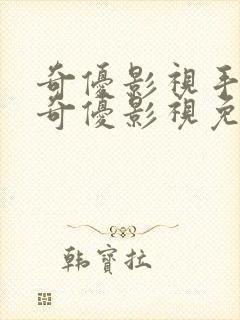 奇優影視手
奇優影視免
韩寶拉